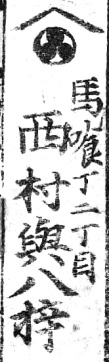 馬喰丁二丁目
西村與八梓